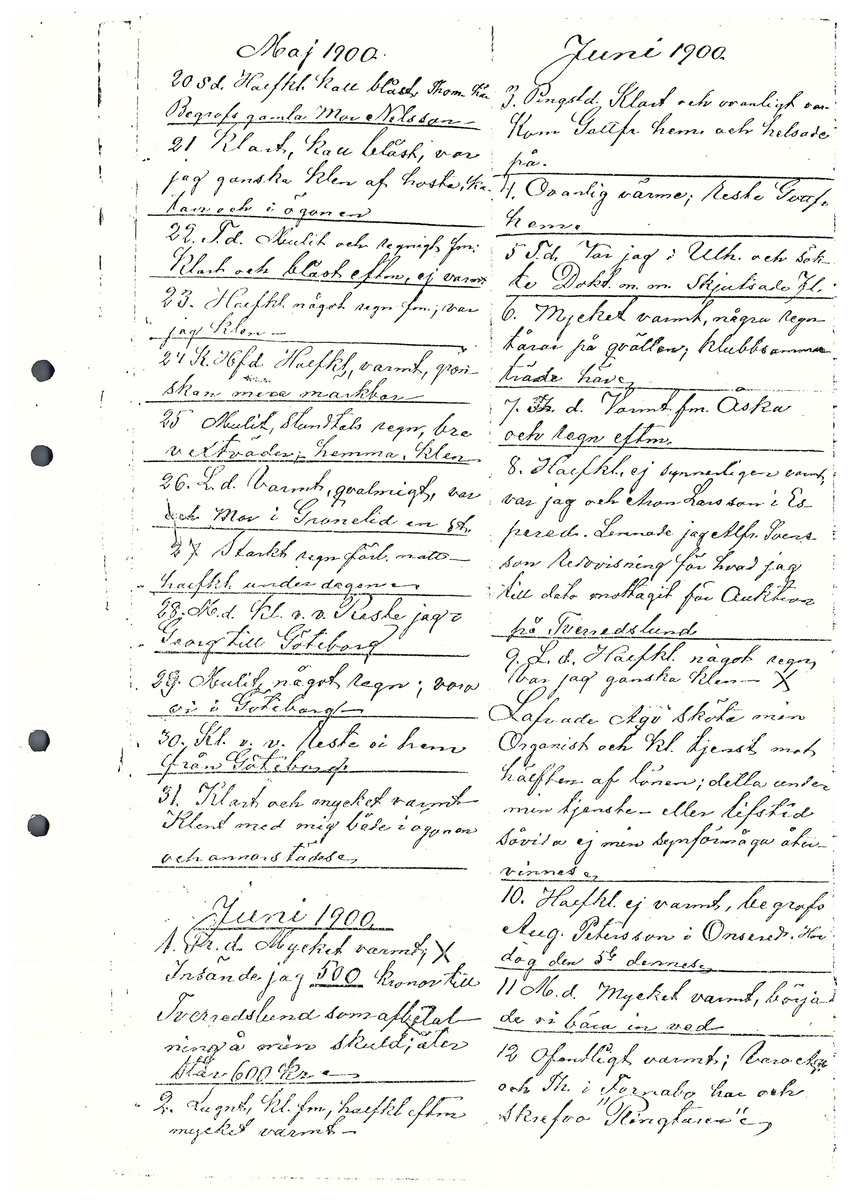 Maj 1900.
20 Sd. Haefkl. kall blåst, Thom
Begrofs gamla Mor Nelsson
21 Klart, kall blåst, var
jag ganska klen af hosta,
och i ögonen
22. T.d. Mulit och regnigt fm.
Klart och blåst eftm, ej varmt
23. Haefkl. något regn fm; var
jag klen
24 K. Hfd. Haefkl, varmt, grön-
skan mera märkbar
25 Mulit, stundtals regn, bra
vextväder; hemma, klen
26. L.d. Varmt, qvalmigt, var
Mor i Gronelid en st.
27 Starkt regn förl. natt
haefkl. under dagen
28. M.d. kl. v. v. Reste jag o
Georg till Göteborg
29. Mulit, något regn; voro
vi i Göteborg
30. Kl. v. v. Reste vi hem
från Göteborg
31. Klart och mycket varmt
Klent med mig både i ögonen
och annorstädes
Juni 1900.
1. Fr. d. Mycket varmt; X
Insände jag 500 kronor till
Tverredslund som afbetal-
ning å min skuld; åter
står 600 kr
2. Lugnt, kl. fm, haefkl eftm
mycket varmt
Juni 1900.
3. Pingstd. Klart och ovanligt
Kom Gottfr. hem och helsade
på.
4. Ovanlig värme; reste Gottfr.
hem.
5 T.d. Var jag i Ulh. och sök-
te Dokt. m. m. Skjutsade Fl.
6. Mycket varmt, några regn-
tårar på qvällen; klubbsamman-
träde här
7. Th. d. Varmt fm. Åska
och regn eftm.
8. Haefkl. ej synnerligen varmt,
var jag och Aron Larsson i Es-
pered. Lemnade jag Alfr. Svens-
son redovisning för hvad jag
till dato mottagit för Auktion
på Tverredslund
9. L. d. Haefkl. något regn,
var jag ganska klen X
Lofvade Agö sköta min
Organist och kl. tjenst mot
hälften af lönen; detta under
min tjenste- eller lifstid
såvida ej min synförmåga åter-
vinnes
10. Haefkl. ej varmt, begrofs
Aug. Petersson i Onsered.
dog den 5te dennes
11 M.d. Mycket varmt, börja-
de vi bära in ved
12 Ofantligt varmt; Voro
och Th. i Tornabo har och
skrefvo "Ringtaren"